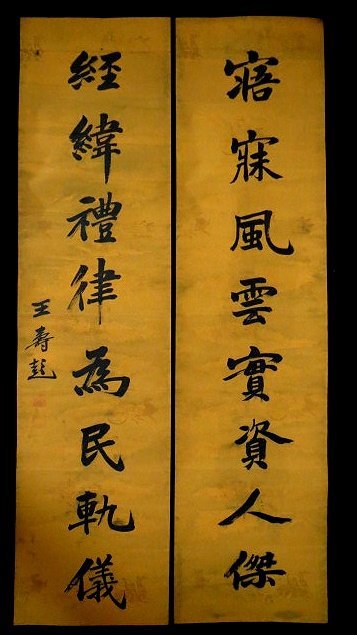 寤寐風雲實資人傑
經緯禮律為民軌儀
王壽彭